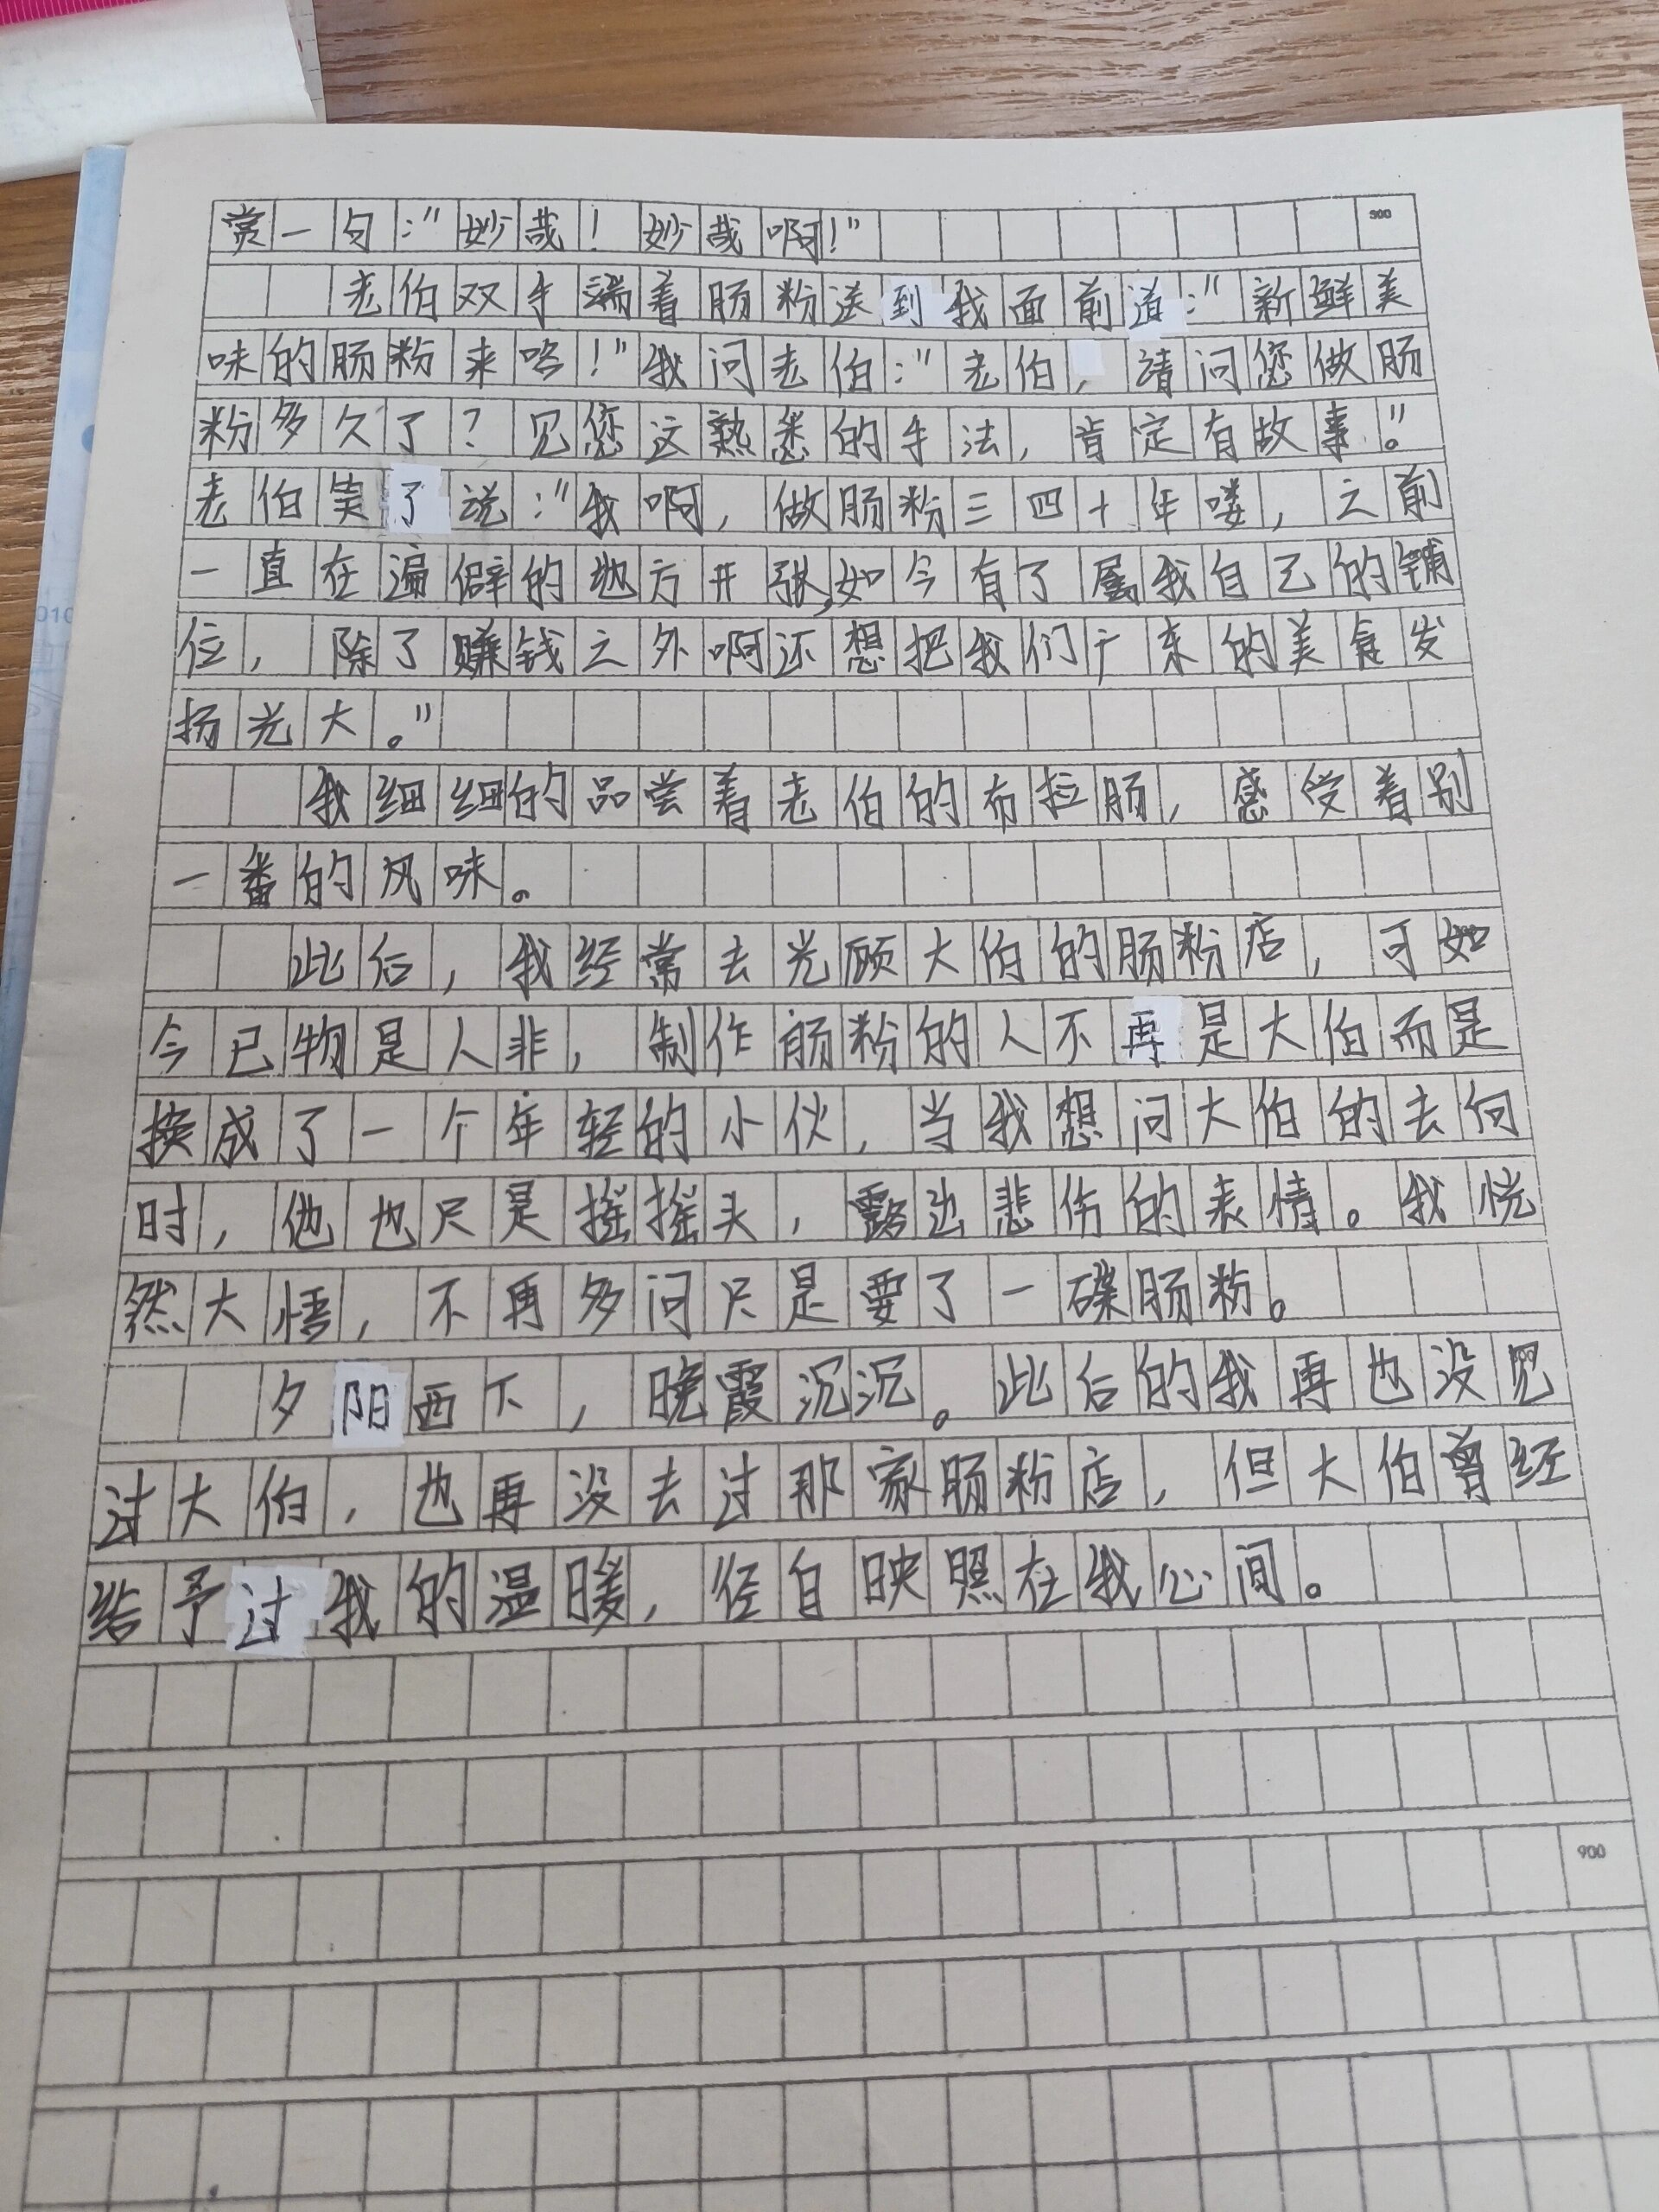 赏一句:"妙哉!妙哉啊!"
300
老伯双手端着肠粉送到我面前道:"新鲜美
味的肠粉来咯!"我问老伯:"老伯,请问您做肠
粉多久了?见您这熟悉的手法,肯定有故事。"
老伯笑了说:"我啊,做肠粉三四十年喽,之前
一直在遍僻的地方开张,如今有了属我自己的铺
位,除了赚钱之外啊还想把我们广东的美食发
扬光大。"
我细细的品尝着老伯的布拉肠,感受着别
一番的风味。
此后,我经常去光顾大伯的肠粉店,可如
今已物是人非,制作肠粉的人不再是大伯而是
换成了一个年轻的小伙,当我想问大伯的去向
时,他也只是摇摇头,露出悲伤的表情。我恍
然大悟,不再多问只是要了一碟肠粉。
夕阳西下,晚霞沉沉。此后的我再也没见
过大伯,也再没去过那家肠粉店,但大伯曾经
给予过我的温暖,径自映照在我心间。
900